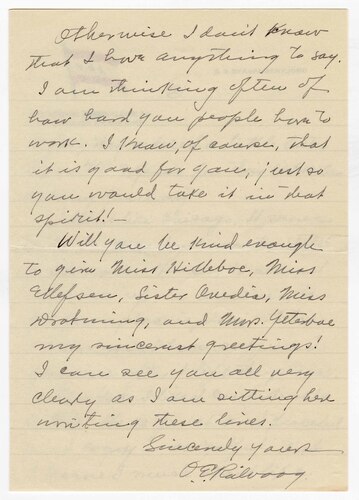 Otherwise I don't know
that I have anything to say.
I am thinking often of
how hard you people have to
work. I know, of course, that
it is good for you, just so
you would take it in that
spirit! –
Will you be kind enough
to give Miss Hilleboe, Miss
Ellefsen, Sister Ovedia, Miss
Drotning, and Mrs. Ytterboe
my sincerest greetings!
I can see you all very
clearly as I am sitting here
writing these lines.
Sincerely yours
O.E. Rølvaag